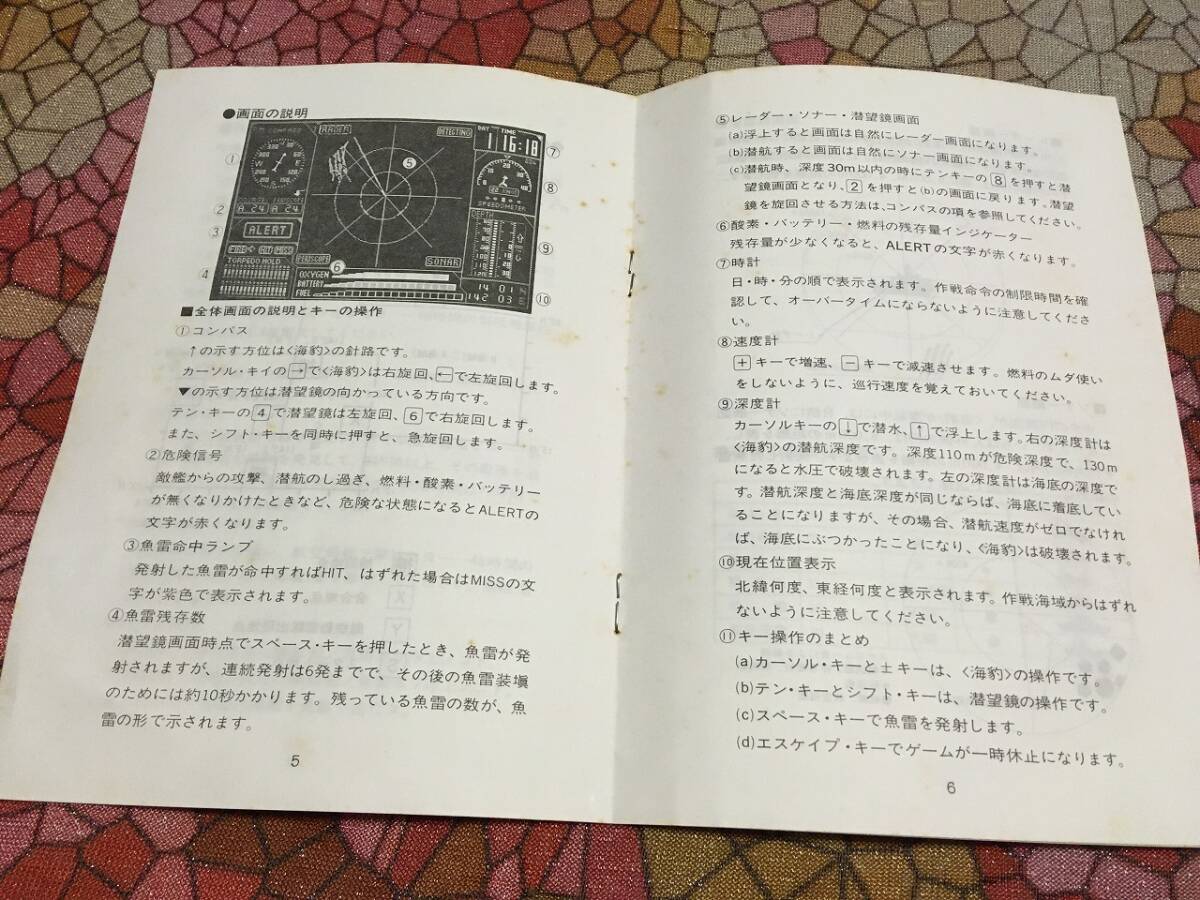 ●画面の説明
COMPASS
RADER
DETECTING
DAY TIME
1 16:18
①
②
③
④
⑤
⑥
⑦
⑧
⑨
⑩
W E
A 24 A 24
ALERT
HIT MISS
TORPEDO HOLD
PERISCOPE
SONAR
SPEEDOMETER
DEPTH
OXYGEN
BATTERY
FUEL
14 01 N
142 03 E
■全体画面の説明とキーの操作
①コンパス
↑の示す方位は〈海豹〉の針路です。
カーソル・キイの→で〈海豹〉は右旋回、←で左旋回します。
▼の示す方位は潜望鏡の向かっている方向です。
テン・キーの4で潜望鏡は左旋回、6で右旋回します。
また、シフト・キーを同時に押すと、急旋回します。
②危険信号
敵艦からの攻撃、潜航のし過ぎ、燃料・酸素・バッテリー
が無くなりかけたときなど、危険な状態になるとALERTの
文字が赤くなります。
③魚雷命中ランプ
発射した魚雷が命中すればHIT、はずれた場合はMISSの文
字が紫色で表示されます。
④魚雷残存数
潜望鏡画面時点でスペース・キーを押したとき、魚雷が発
射されますが、連続発射は6発までで、その後の魚雷装塡
のためには約10秒かかります。残っている魚雷の数が、魚
雷の形で示されます。
5
⑤レーダー・ソナー・潜望鏡画面
(a)浮上すると画面は自然にレーダー画面になります。
(b)潜航すると画面は自然にソナー画面になります。
(c)潜航時、深度30m以内の時にテンキーの8を押すと潜
望鏡画面となり、2を押すと(b)の画面に戻ります。潜望
鏡を旋回させる方法は、コンパスの項を参照してください。
⑥酸素・バッテリー・燃料の残存量インジケーター
残存量が少なくなると、ALERTの文字が赤くなります。
⑦時計
日・時・分の順で表示されます。作戦命令の制限時間を確
認して、オーバータイムにならないように注意してくださ
い。
⑧速度計
+キーで増速、−キーで減速させます。燃料のムダ使い
をしないように、巡行速度を覚えておいてください。
⑨深度計
カーソルキーの↓で潜水、↑で浮上します。右の深度計は
〈海豹〉の潜航深度です。深度110mが危険深度で、130m
になると水圧で破壊されます。左の深度計は海底の深度で
す。潜航深度と海底深度が同じならば、海底に着底してい
ることになりますが、その場合、潜航速度がゼロでなけれ
ば、海底にぶつかったことになり、〈海豹〉は破壊されます。
⑩現在位置表示
北緯何度、東経何度と表示されます。作戦海域からはずれ
ないように注意してください。
⑪キー操作のまとめ
(a)カーソル・キーと±キーは、〈海豹〉の操作です。
(b)テン・キーとシフト・キーは、潜望鏡の操作です。
(c)スペース・キーで魚雷を発射します。
(d)エスケイプ・キーでゲームが一時休止になります。
6